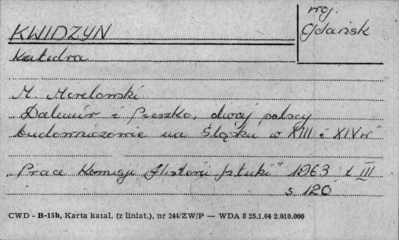 woj.
KWIDZYN Gdańsk
Katedra
M. Morelowski
Dalemir i Peszko, dwaj polscy
budowniczowie na Śląsku w XIII i XIV w"
"Prace Komisji Historii Sztuki" 1963 t III
s. 120
CWD - B-15b, Karta katal. (z liniat.), nr 244/ZW/P — WDA 8 25.1.64 2.010.000